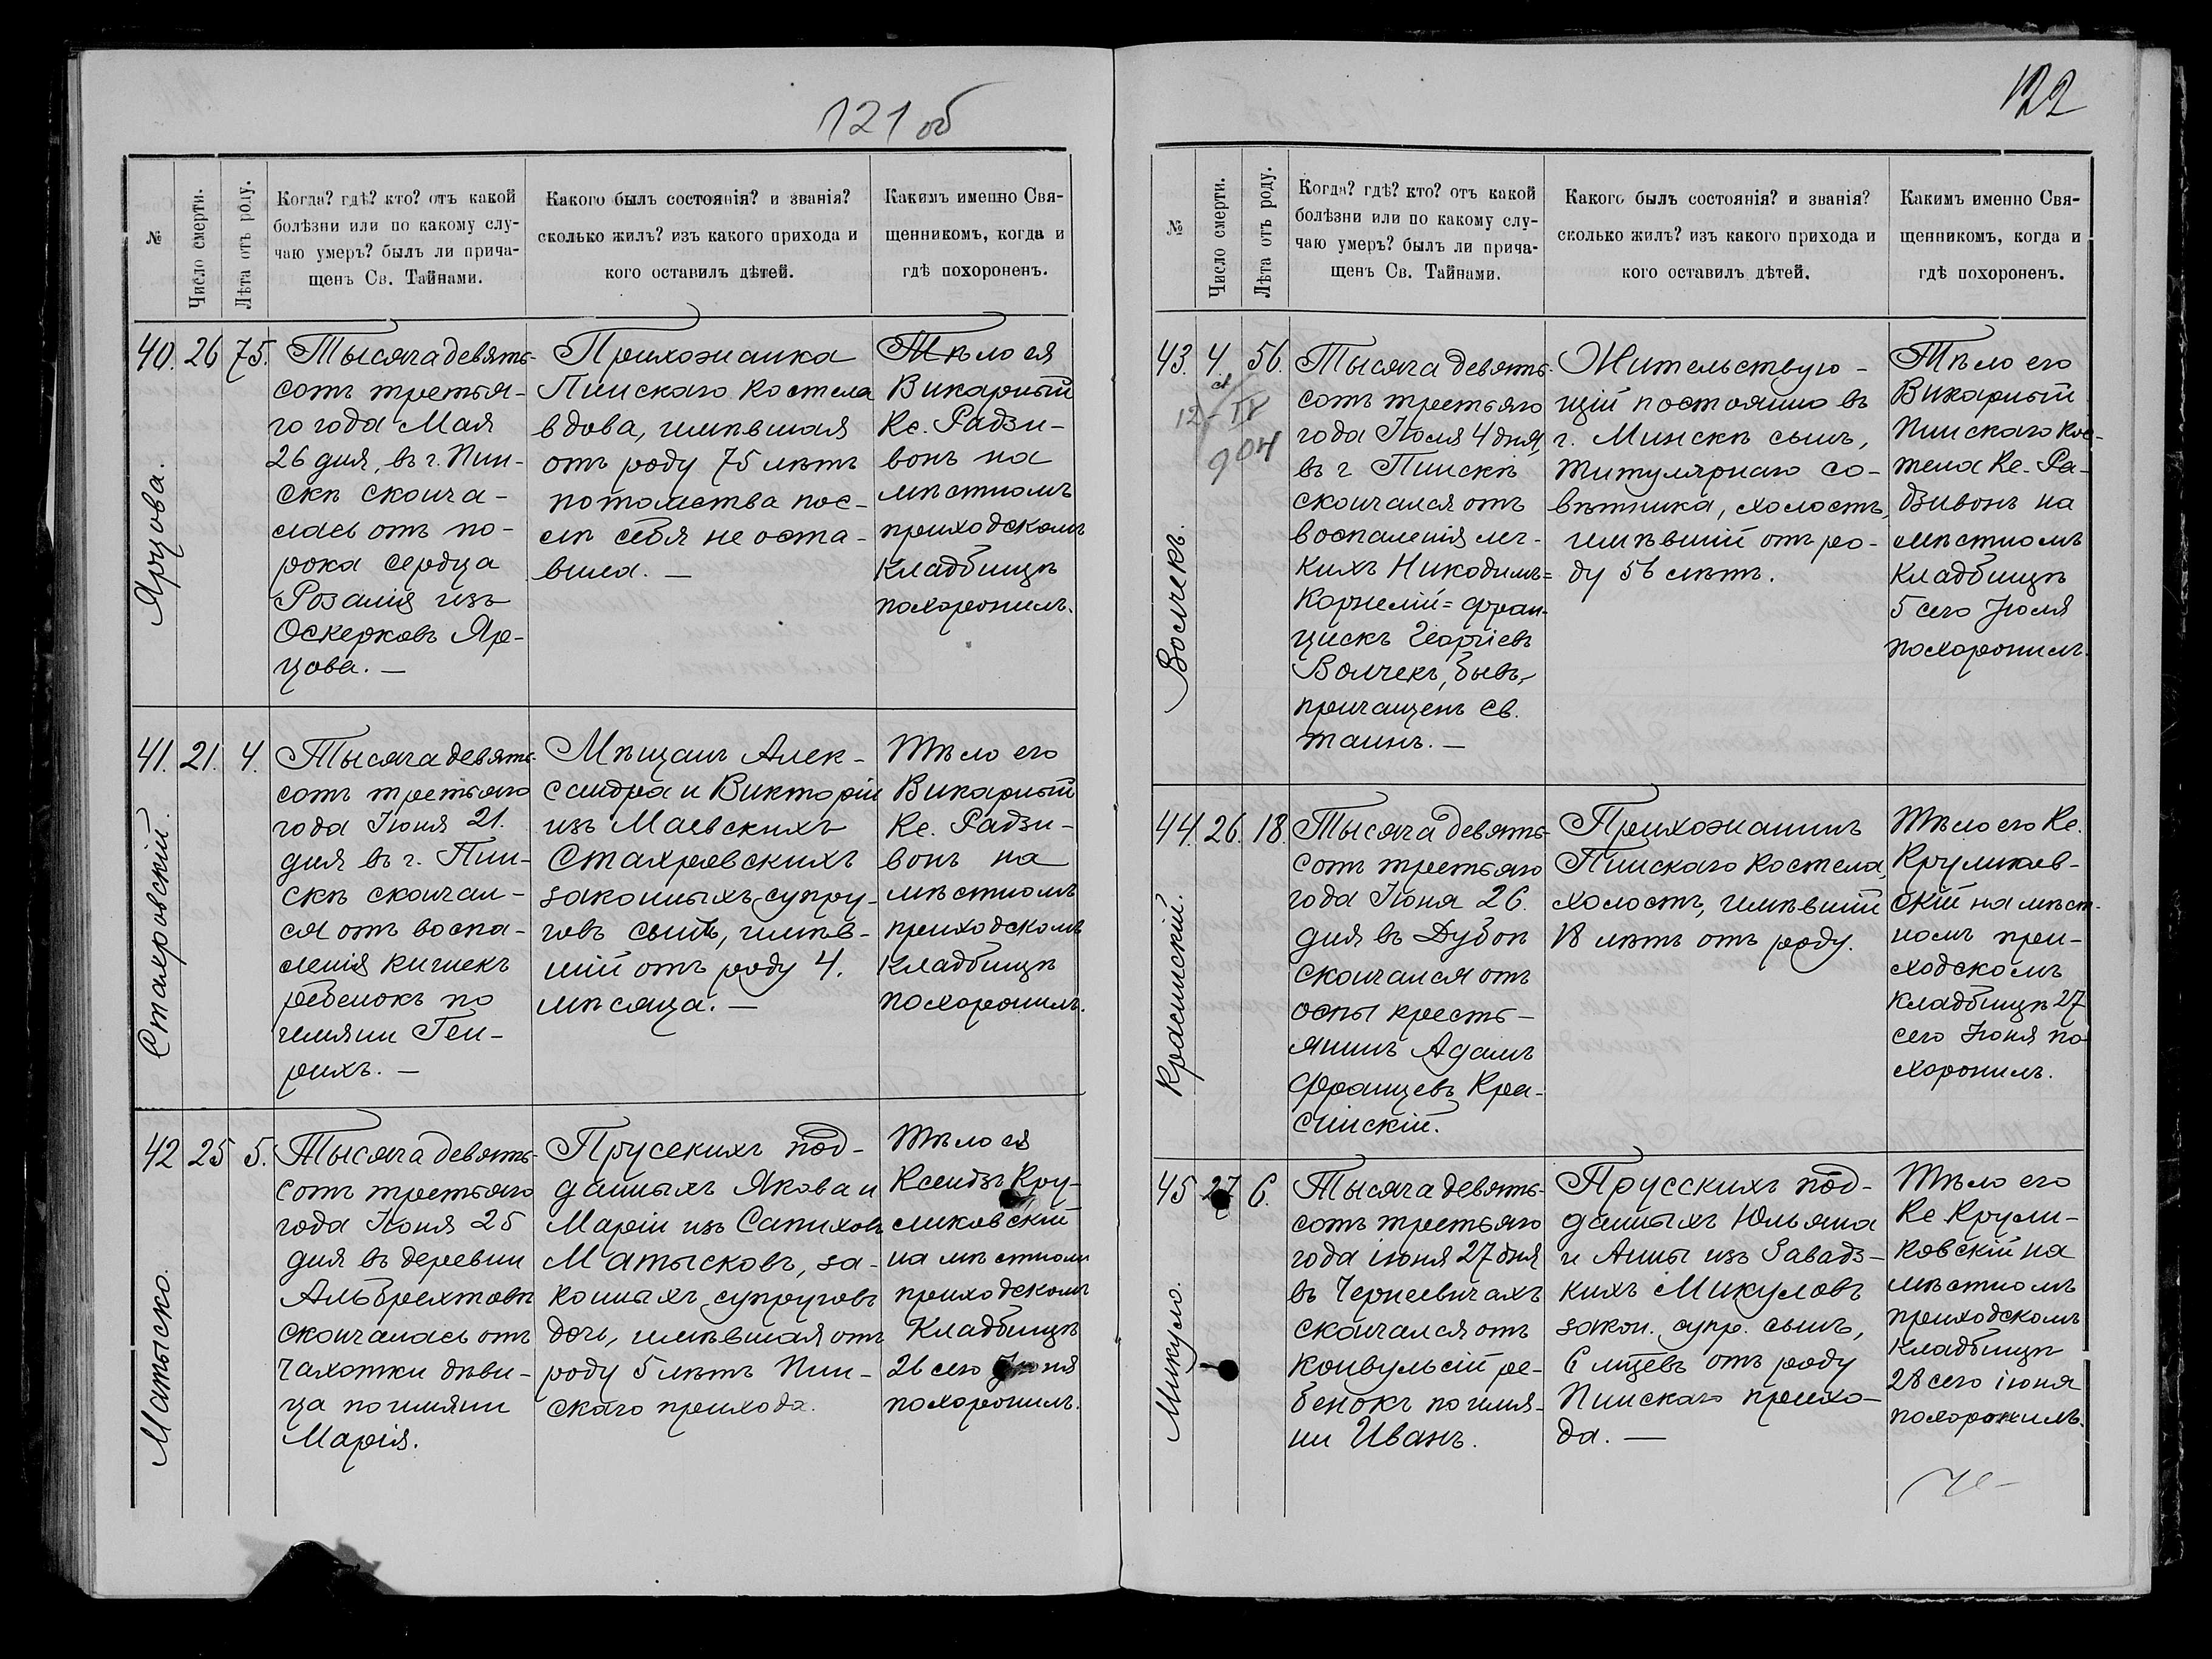 121 об
№
Число смерти.
Лѣта отъ роду.
Когда? гдѣ? кто? отъ какой
болѣзни или по какому слу-
чаю умеръ? былъ ли прича-
щенъ Св. Тайнами.
Какого былъ состоянія? и званія?
сколько жилъ? изъ какого прихода и
кого оставилъ дѣтей.
Какимъ именно Свя-
щенникомъ, когда и
гдѣ похороненъ.
40. 26 75.
Ярцова.
Тысяча девять-
сотъ третья-
го года Мая
26 дня, въ г. Пин-
скѣ сконча-
лась отъ по-
рока сердца
Розалія изъ
Оскерковъ Яр-
цова. —
Прихожанка
Пинскаго костела
вдова, имѣвшая
отъ роду 75 лѣтъ
потомства пос-
лѣ себя не оста-
вила. —
Тѣло ея
Викарный
Кс. Радзи-
вонъ на
мѣстномъ
приходскомъ
кладбищѣ
похоронилъ.
41. 21. 4.
Стахровскій.
Тысяча девять-
сотъ третьяго
года Іюня 21.
дня въ г. Пин-
скѣ скончал-
ся отъ воспа-
ленія кишекъ
ребенокъ по
имяни Ген-
рихъ. —
Мѣщанъ Алек-
сандра и Викторіи
изъ Маевскихъ
Стахровскихъ
законныхъ супру-
говъ сынъ, имѣв-
шій отъ роду 4.
мѣсяца. —
Тѣло его
Викарный
Кс. Радзи-
вонъ на
мѣстномъ
приходскомъ
кладбищѣ
похоронилъ.
42 25 5.
Матыско.
Тысяча девять-
сотъ третьяго
года Іюня 25
дня въ деревни
Альбрехтовѣ
скончалась отъ
чахотки дѣви-
ца по имяни
Марія.
Прусскихъ под-
данныхъ Якова и
Маріи изъ Сапиховъ
Матысковъ, за-
конныхъ супруговъ
дочь, имѣвшая отъ
роду 5 лѣтъ Пин-
скаго прихода.
Тѣло ея
Ксендзъ Кру-
ликовскій
на мѣстномъ
приходскомъ
кладбищѣ
26 сего Іюня
похоронилъ.
122
№
Число смерти.
Лѣта отъ роду.
Когда? гдѣ? кто? отъ какой
болѣзни или по какому слу-
чаю умеръ? былъ ли прича-
щенъ Св. Тайнами.
Какого былъ состоянія? и званія?
сколько жилъ? изъ какого прихода и
кого оставилъ дѣтей.
Какимъ именно Свя-
щенникомъ, когда и
гдѣ похороненъ.
43. 4. 56.
12/IV
904
Волчекъ.
Тысяча девять-
сотъ третьяго
года Іюля 4 дня,
въ г. Пинскѣ
скончался отъ
воспаленія лег-
кихъ Никодимъ=
Корнелій= Фран-
цискъ Георгіевъ
Волчекъ, бывъ
причащенъ Св.
таинъ. —
Жительствую-
щій постоянно въ
г. Минскѣ сынъ,
титулярнаго со-
вѣтника, холостъ,
имѣвшій отъ ро-
ду 56 лѣтъ.
Тѣло его
Викарный
Пинскаго кос-
тела Кс. Ра-
дзивонъ на
мѣстномъ
кладбищѣ
5 сего Іюля
похоронилъ.
44. 26. 18.
Красинскій.
Тысяча девять-
сотъ третьяго
года Іюня 26.
дня въ Дубоѣ
скончался отъ
оспы кресть-
янинъ Адамъ
Францевъ Кра-
синскій.
Прихожанинъ
Пинскаго костела,
холостъ, имѣвшій
18 лѣтъ отъ роду.
Тѣло его Кс.
Круликов-
скій на мѣст-
номъ при-
ходскомъ
кладбищѣ 27
сего Іюня по-
хоронилъ.
45 27 6.
Микуло.
Тысяча девять-
сотъ третьяго
года іюня 27 дня
въ Чернеевичахъ
скончался отъ
конвульсій ре-
бенокъ по имя-
ни Иванъ.
Прусскихъ под-
данныхъ Юльяна
и Анны изъ Завадз-
кихъ Микуловъ
закон. супр. сынъ,
6 мцевъ отъ роду
Пинскаго прихо-
да. —
Тѣло его
Кс Крули-
ковскій на
мѣстномъ
приходскомъ
кладбищѣ
28 сего іюня
похоронилъ.